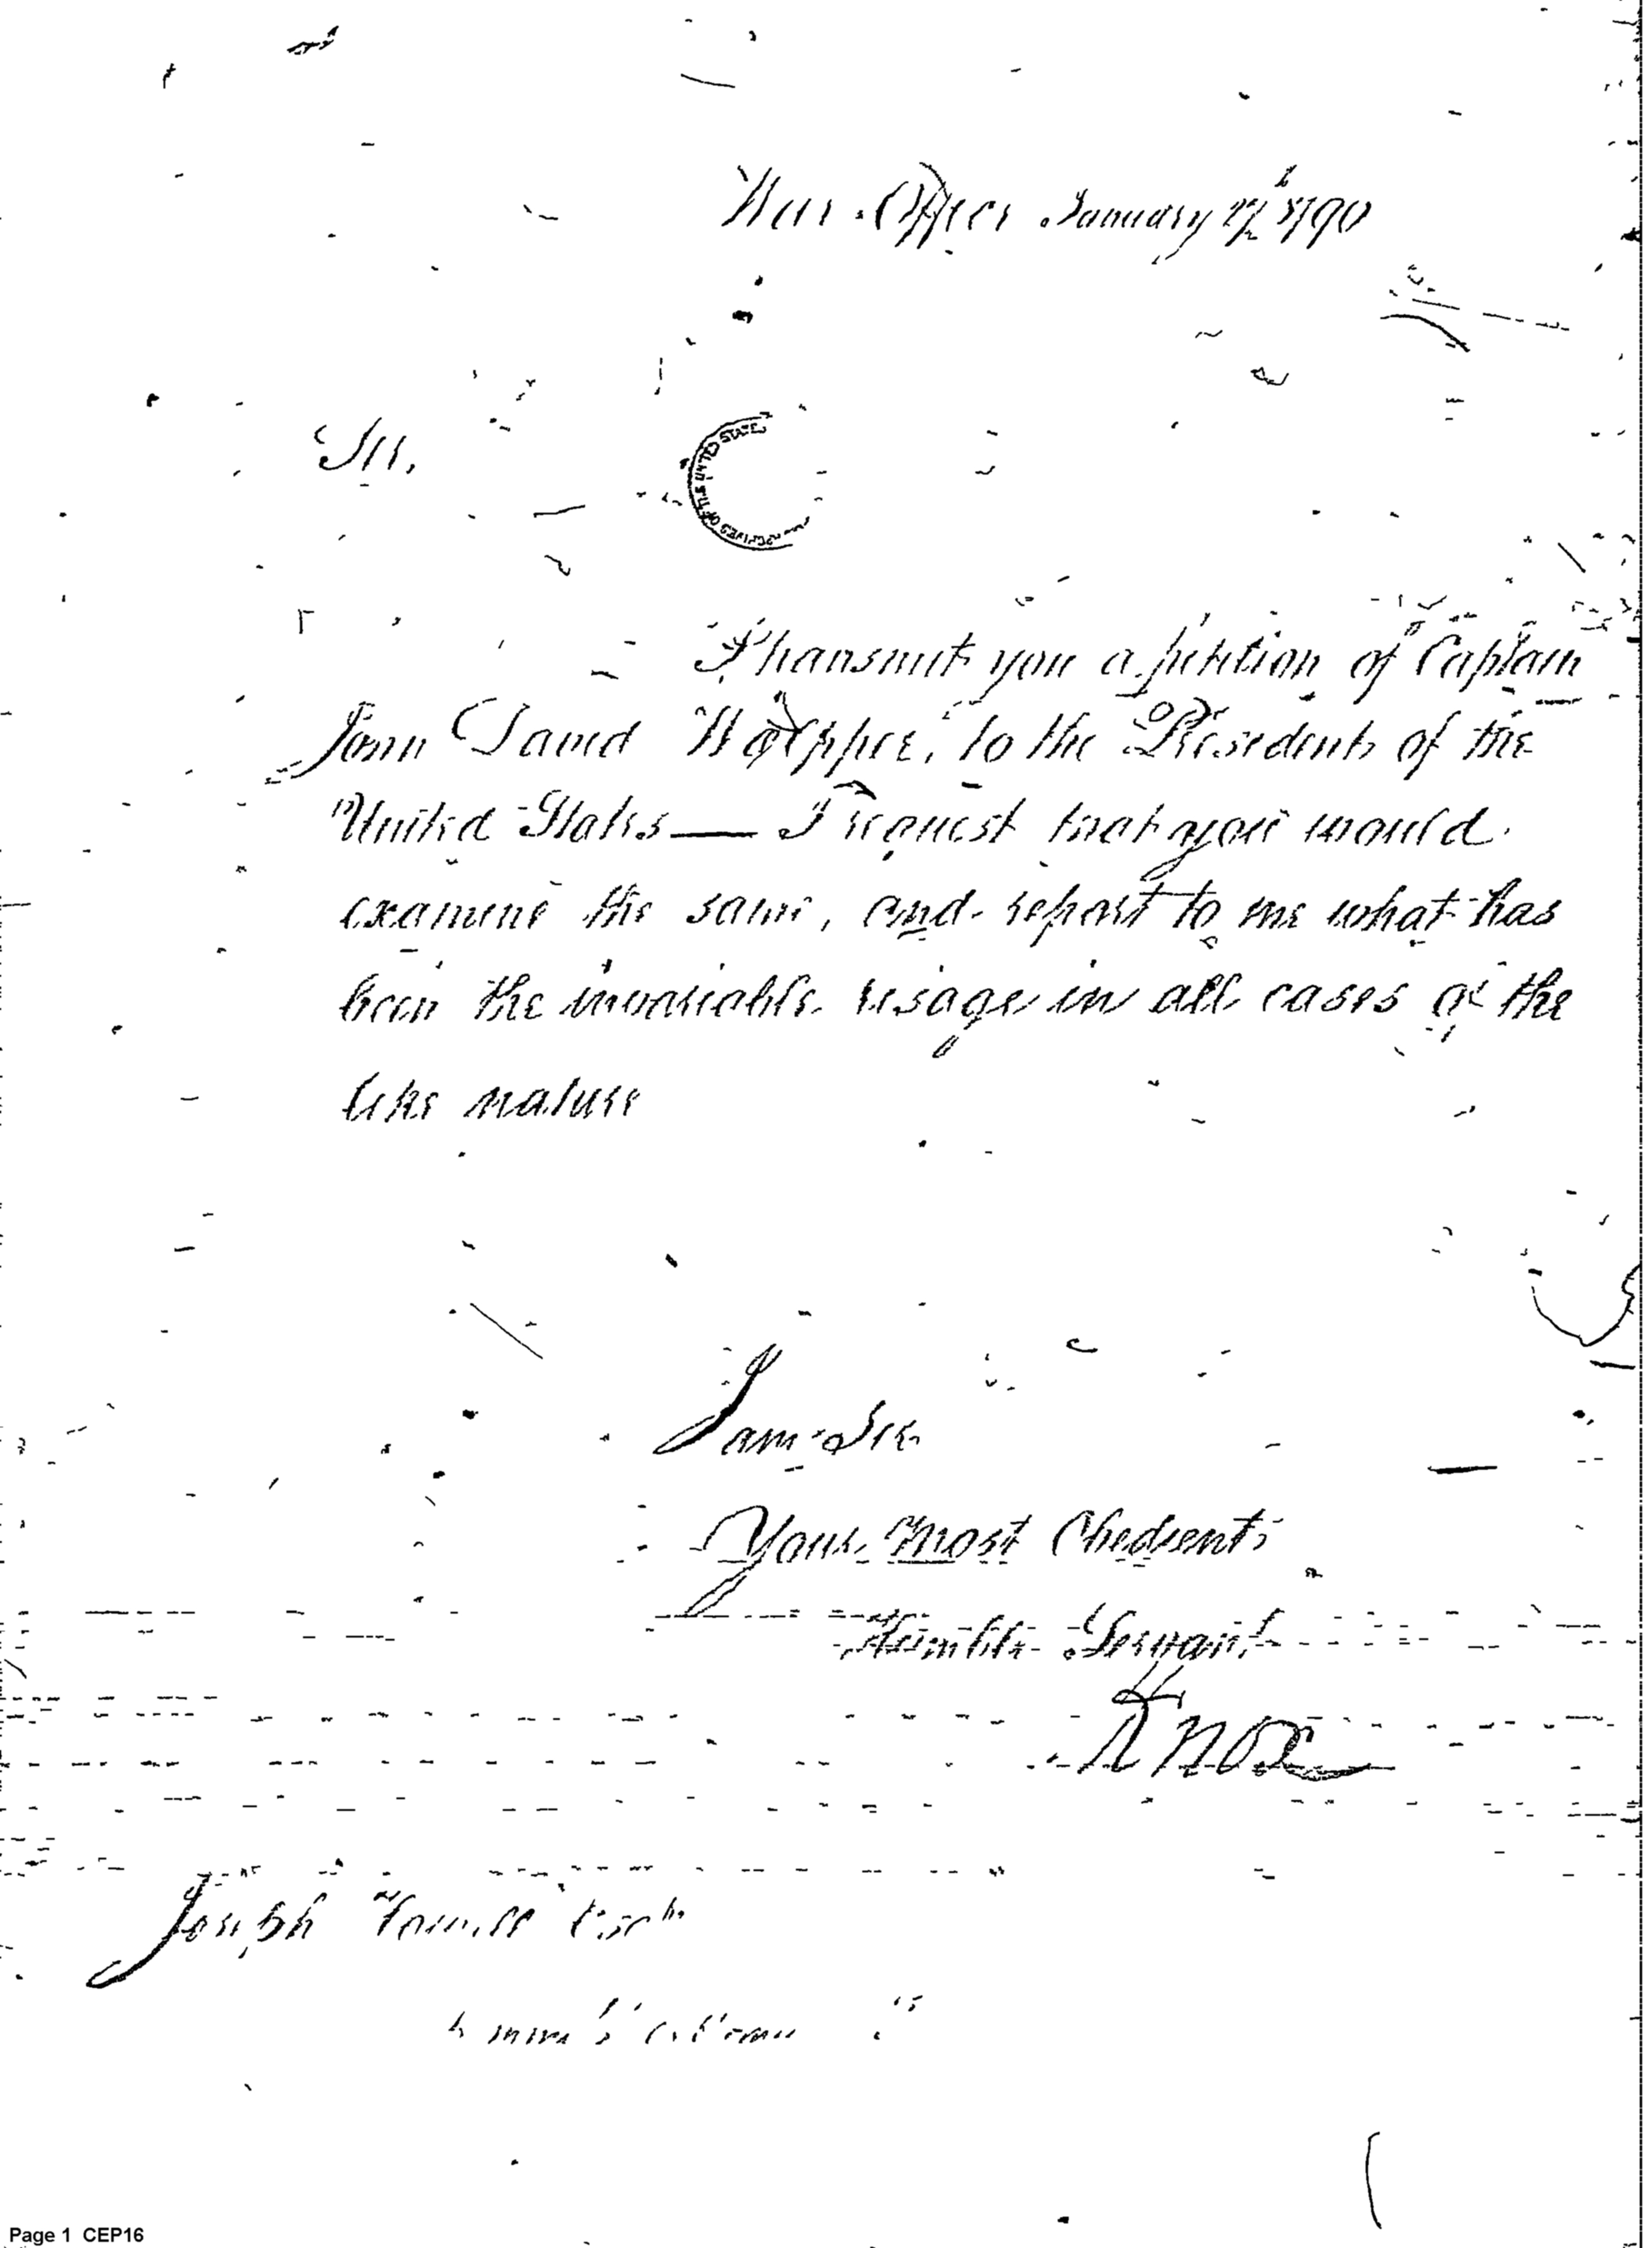 War Office January 1790
Sir,
ARCHIVES OF THE UNITED STATES
I transmit you a petition of Captain
John David Wolpper, to the President of the
United States — I request that you would
examine the same, and report to me what has
been the invariable usage in all cases of the
like nature
I am Sir
Your Most Obedient
Humble Servant
H Knox
Joseph Howell Esqr
Page 1 CEP16